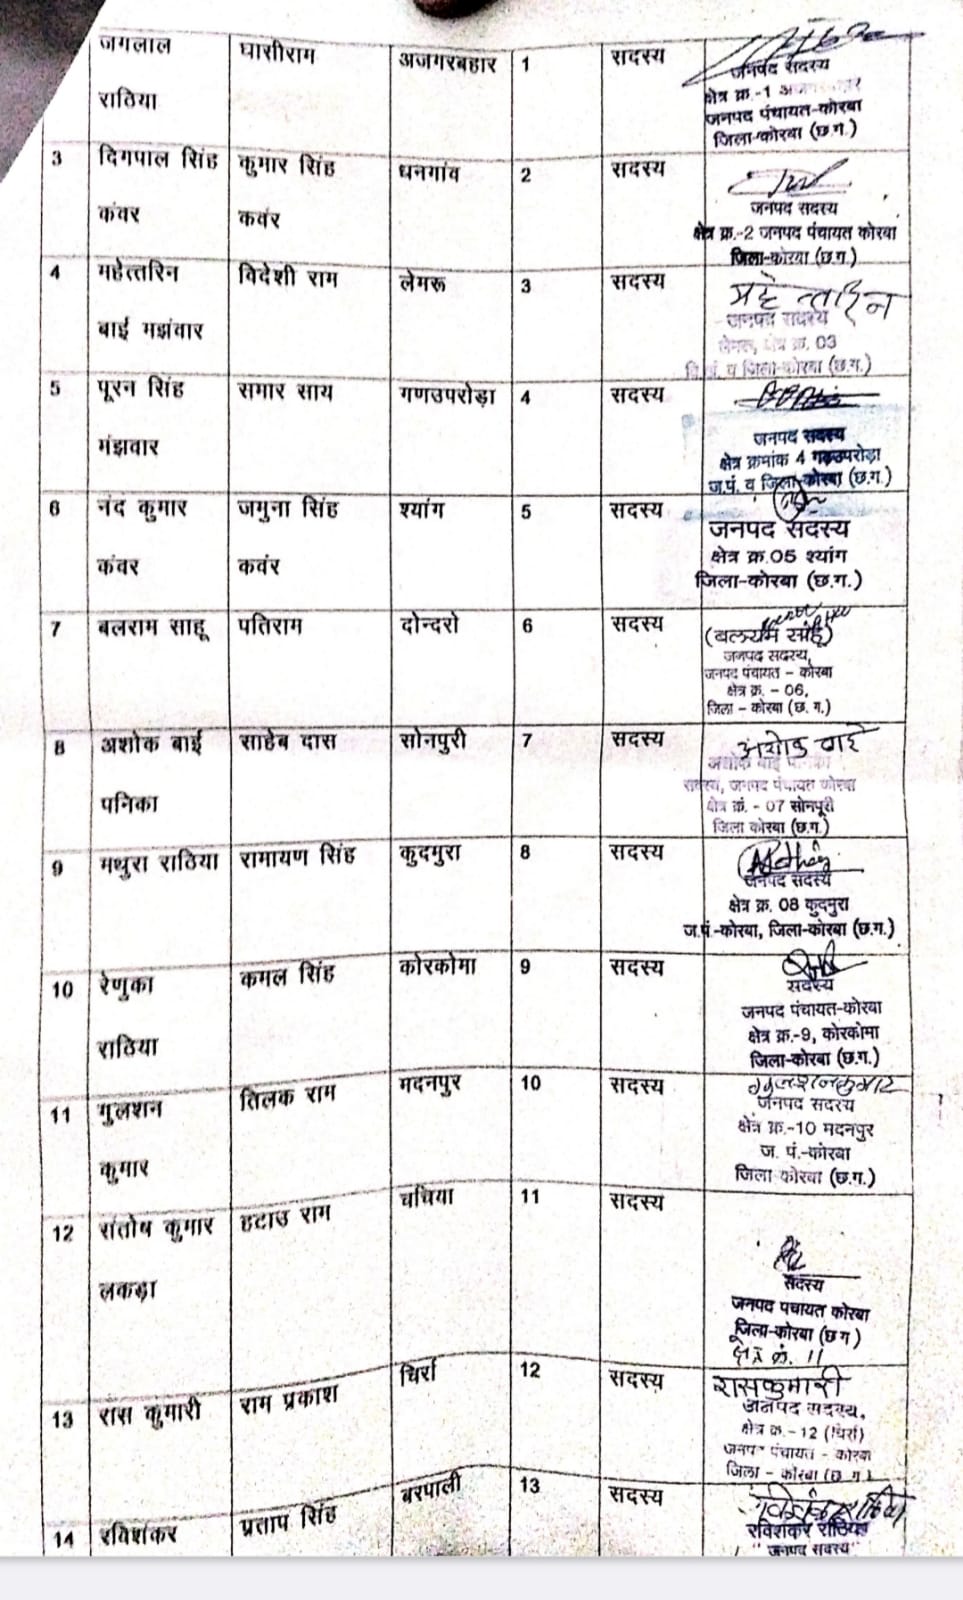 जगलाल घासीराम अजगरबहार 1 सदस्य
राठिया
जनपद सदस्य
क्षेत्र क्र.-1
जनपद पंचायत-कोरबा
जिला-कोरबा (छ.ग.)
3 दिगपाल सिंह कुमार सिंह धनगांव 2 सदस्य
कंवर कवंर
जनपद सदस्य
क्षेत्र क्र.-2 जनपद पंचायत कोरबा
जिला-कोरबा (छ.ग.)
4 महेत्तरिन विदेशी राम लेमरू 3 सदस्य
बाई मझंवार
महेत्तरिन
जनपद सदस्य
लेमरू, क्षेत्र क्र. 03
व जिला-कोरबा (छ.ग.)
5 पूरन सिंह समार साय गणउपरोड़ा 4 सदस्य
मंझवार
जनपद सदस्य
क्षेत्र क्रमांक 4 गढ़उपरोड़ा
ज.पं. व जिला-कोरबा (छ.ग.)
6 नंद कुमार जमुना सिंह श्यांग 5 सदस्य
कंवर कवंर
जनपद सदस्य
क्षेत्र क्र.05 श्यांग
जिला-कोरबा (छ.ग.)
7 बलराम साहू पतिराम दोन्दरो 6 सदस्य
(बलराम साहू)
जनपद सदस्य,
जनपद पंचायत - कोरबा
क्षेत्र क्र. - 06,
जिला - कोरबा (छ. ग.)
8 अशोक बाई साहेब दास सोनपुरी 7 सदस्य
पनिका
अशोक बाई
अशोक बाई पनिका
सदस्य, जनपद पंचायत कोरबा
क्षेत्र क्रं. - 07 सोनपूरी
जिला कोरबा (छ.ग.)
9 मथुरा राठिया रामायण सिंह कुदमुरा 8 सदस्य
जनपद सदस्य
क्षेत्र क्र. 08 कुदमुरा
ज.पं.-कोरबा, जिला-कोरबा (छ.ग.)
10 रेणुका कमल सिंह कोरकोमा 9 सदस्य
राठिया
सदस्य
जनपद पंचायत-कोरबा
क्षेत्र क्र.-9, कोरकोमा
जिला-कोरबा (छ.ग.)
11 गुलशन तिलक राम मदनपुर 10 सदस्य
कुमार
गुलशन कुमार
जनपद सदस्य
क्षेत्र क्र.-10 मदनपुर
ज. पं.-कोरबा
जिला कोरबा (छ.ग.)
12 संतोष कुमार हटाउ राम चचिया 11 सदस्य
लकड़ा
सदस्य
जनपद पंचायत कोरबा
जिला-कोरबा (छ ग)
क्षेत्र क्रं. 11
13 रास कुमारी राम प्रकाश चिर्रा 12 सदस्य
रासकुमारी
जनपद सदस्य,
क्षेत्र क्र.- 12 (चिर्रा)
जनपद पंचायत - कोरबा
जिला - कोरबा (छ ग)
14 रविशंकर प्रताप सिंह बरपाली 13 सदस्य
रविशंकर राठिया
रविशंकर राठिया
"जनपद सदस्य"